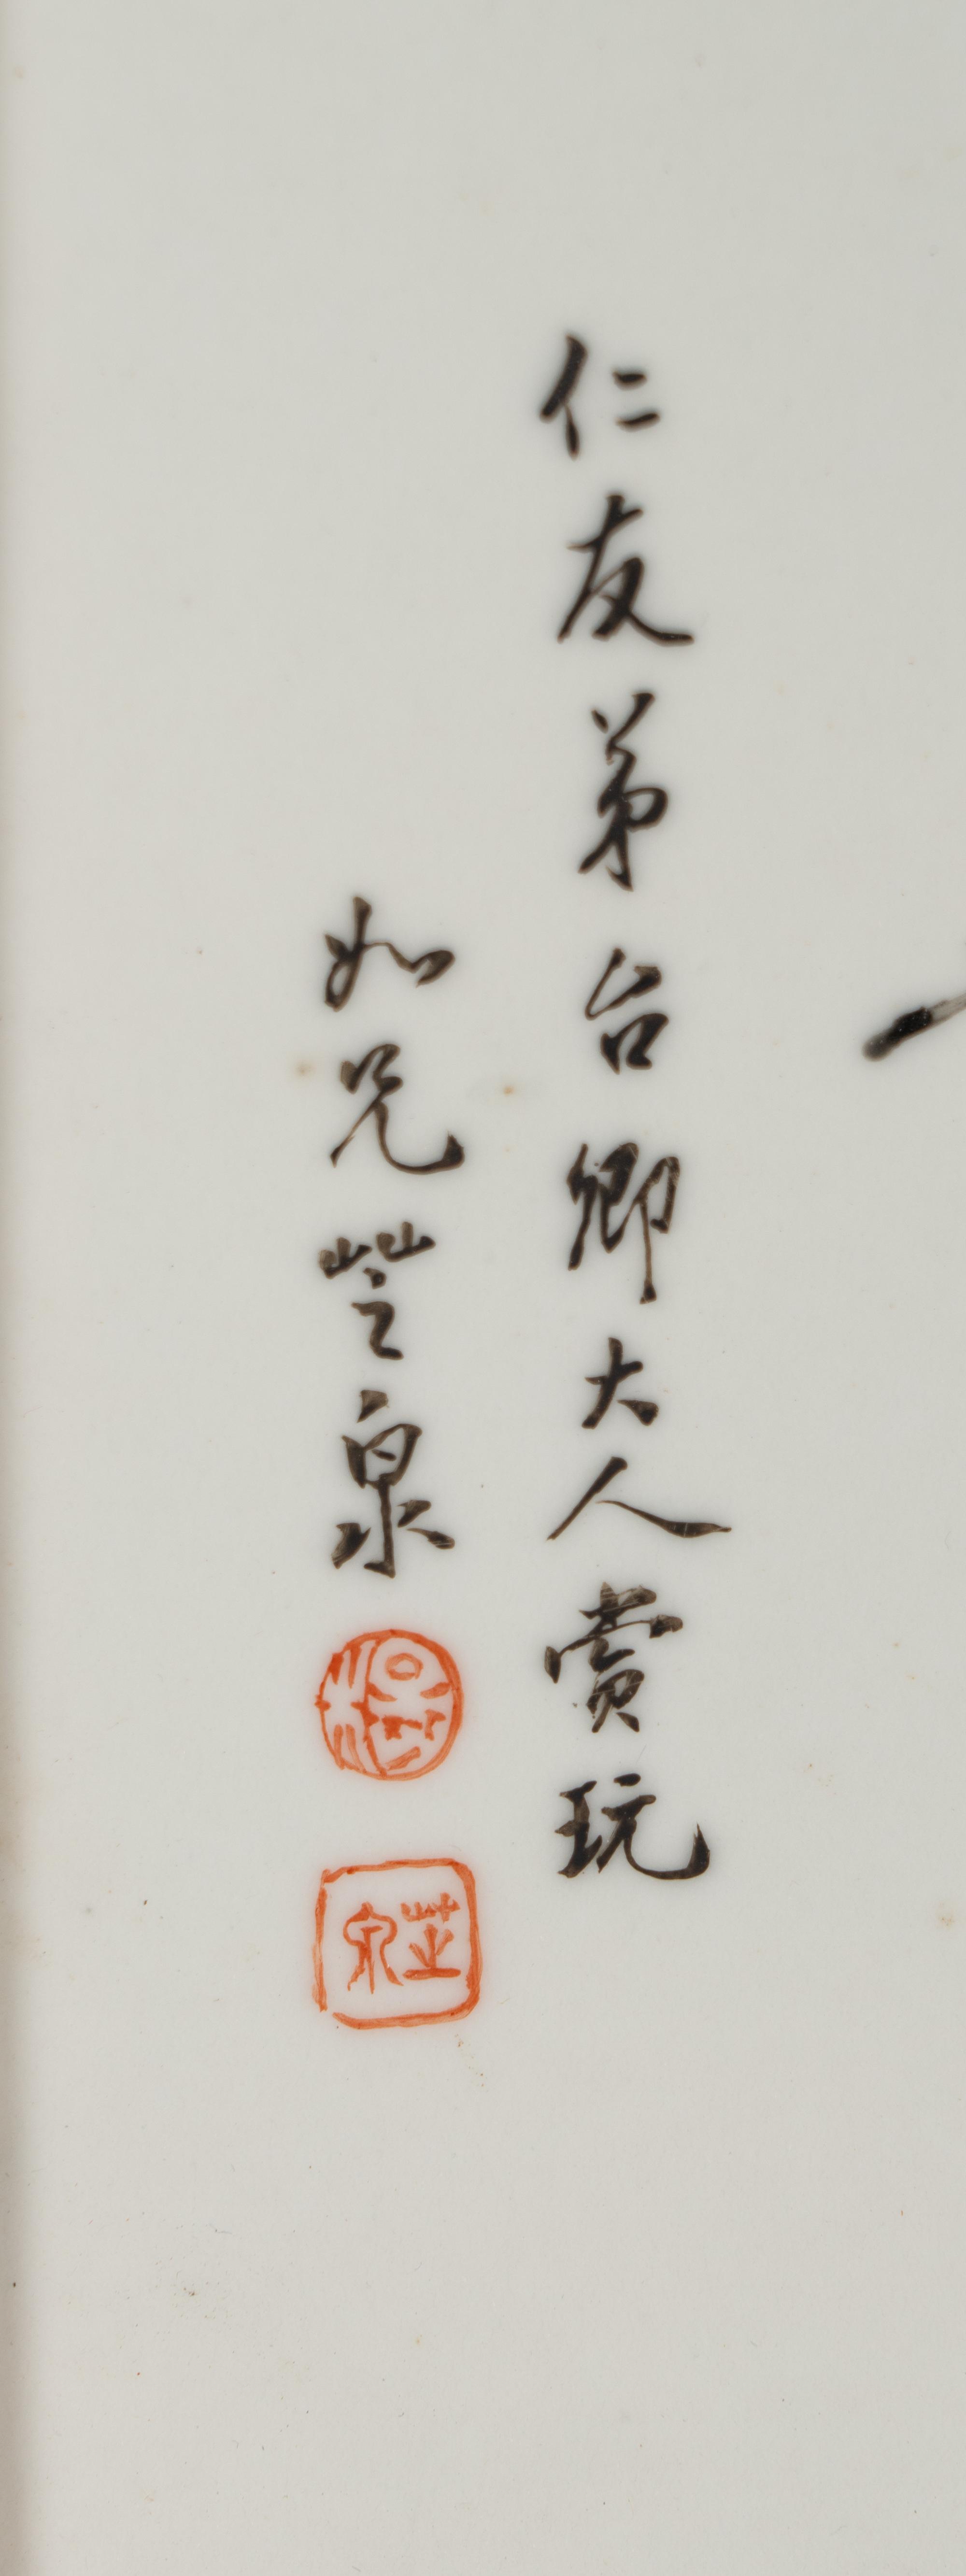 仁友弟台卿大人賞玩
如兄芷泉
芷泉